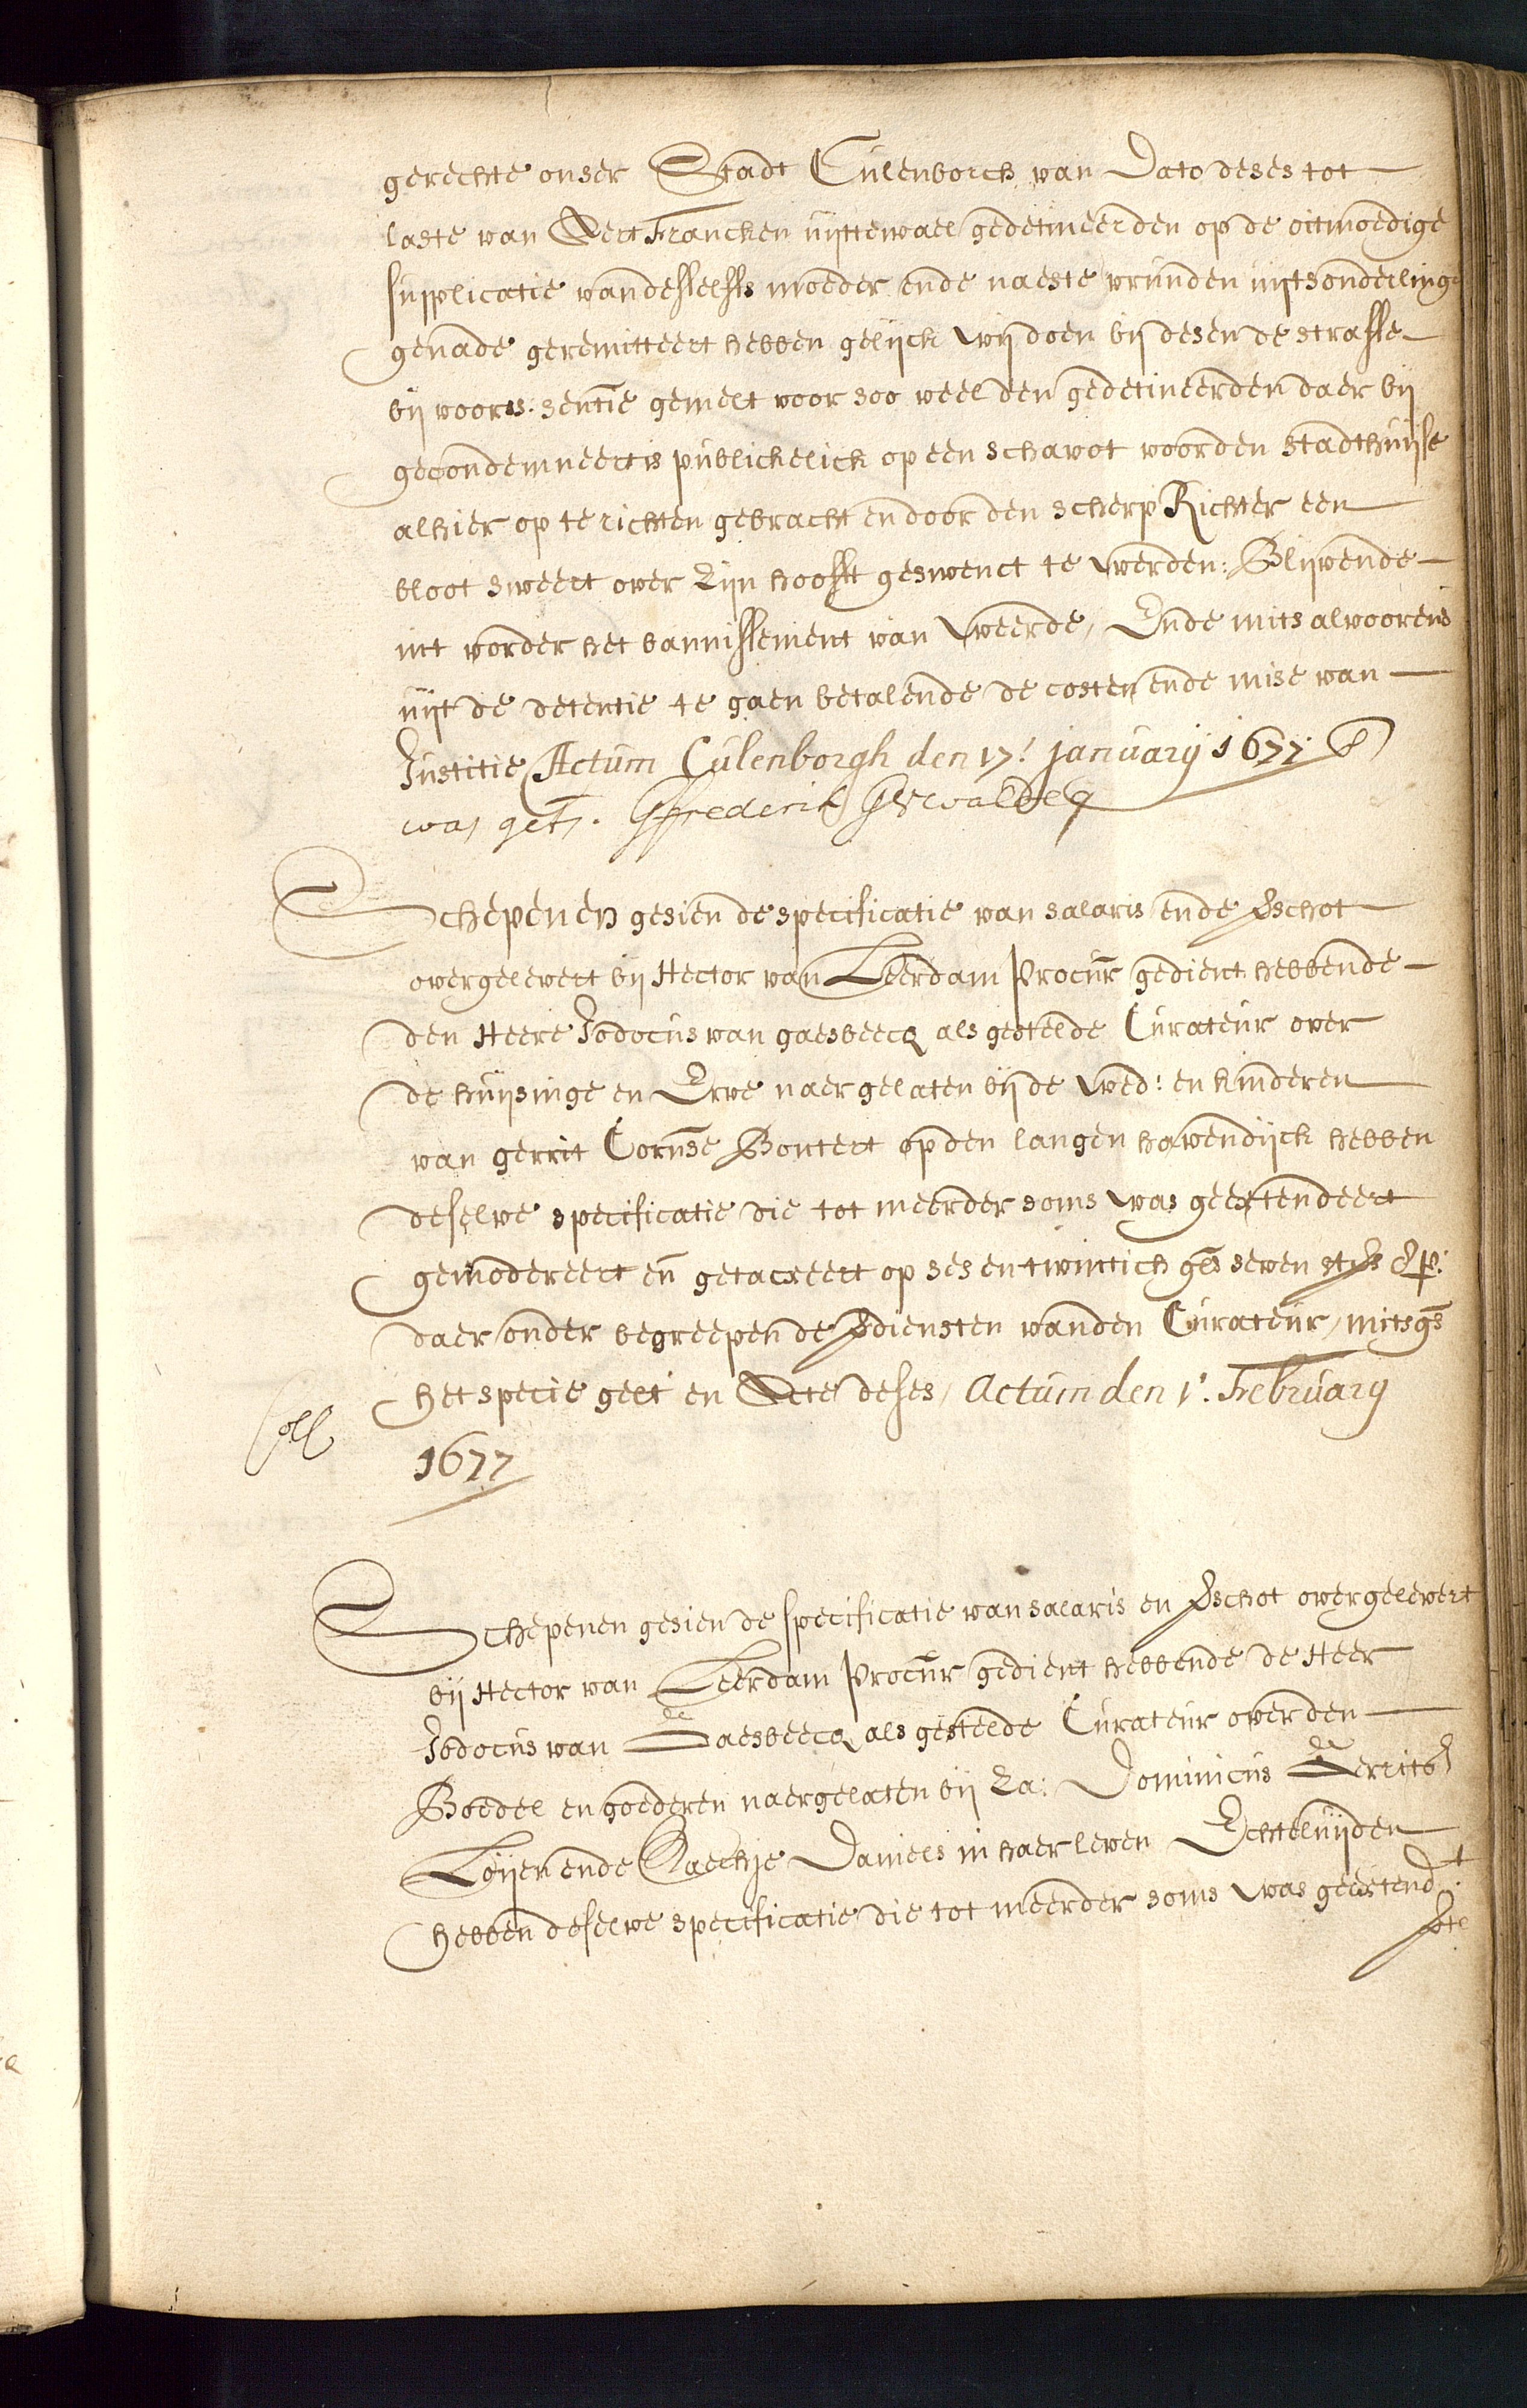 gerechte onser Stadt Culenborch van Dato deses tot
laste van Aert Francken uyttewael gedetineerden op de oitmoedige
supplicatie van desselffs moeder ende naeste vrunden uyt sonderlinge
genade geremitteert hebben gelijck wij doen bij desen de straffe
bij voors. sentie gemelt voor soo veel den gedetineerden daer bij
gecondemneert is publickelick op een schavot voor den stadthuijse
alhier op te richten gebracht en door den scherp Richter een
bloot sweert over zijn hooft geswenct te werden: Blijvende
int vorder het bannissement van weerde, Ende mits alvoorens
uijt de detentie te gaen betalende de costen ende mise van
Justitie Actum Culenborgh den 17. january 1677
was get. Gffrederik GVWaldeq
Schepenen gesien de specificatie van salaris ende verschot
overgelevert bij Hector van Leerdam Procur gedient hebbende
den Heere Jodocus van gaesbeecq als gestelde Curateur over
de huijsinge en Erve naergelaten bij de wed: en kinderen
van gerrit Cornse Bontert op den langen havendijck hebben
deselve specificatie die tot meerder soms was geextendeert
gemodereert en getaxeert op ses en twintich gls seven st 8 p:
daer onder begreepen de verdiensten van den Curateur, mitsgs
het specie gelt en Acte deses, Actum den 1. February
Coll
1677
Schepenen gesien de specificatie van salaris en verschot overgelevert
bij Hector van Leerdam Procur gedient hebbende de Heer
Jodocus van Gaesbeecq als gestelde Curateur over den
Boedel en goederen naergelaten bij za: Dominicus Gerrits
Loijen ende Aechje Daniels in haer leven Echteluijden
hebben deselve specificatie die tot meerder soms was geextendt